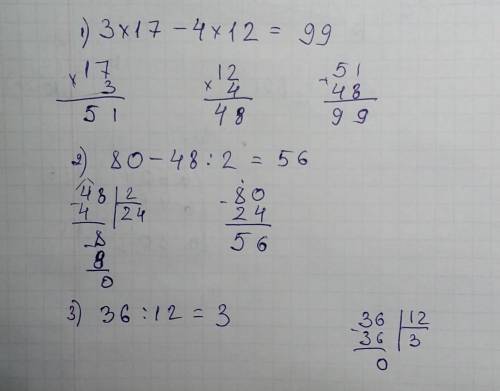 1) 3×17 – 4×12 = 99
×17
3
51
×12
4
48
+51
48
99
2) 80 – 48 : 2 = 56
-48 | 2
4 | 24
-8
8
0
-80
24
56
3) 36 : 12 = 3
-36 | 12
36 | 3
0